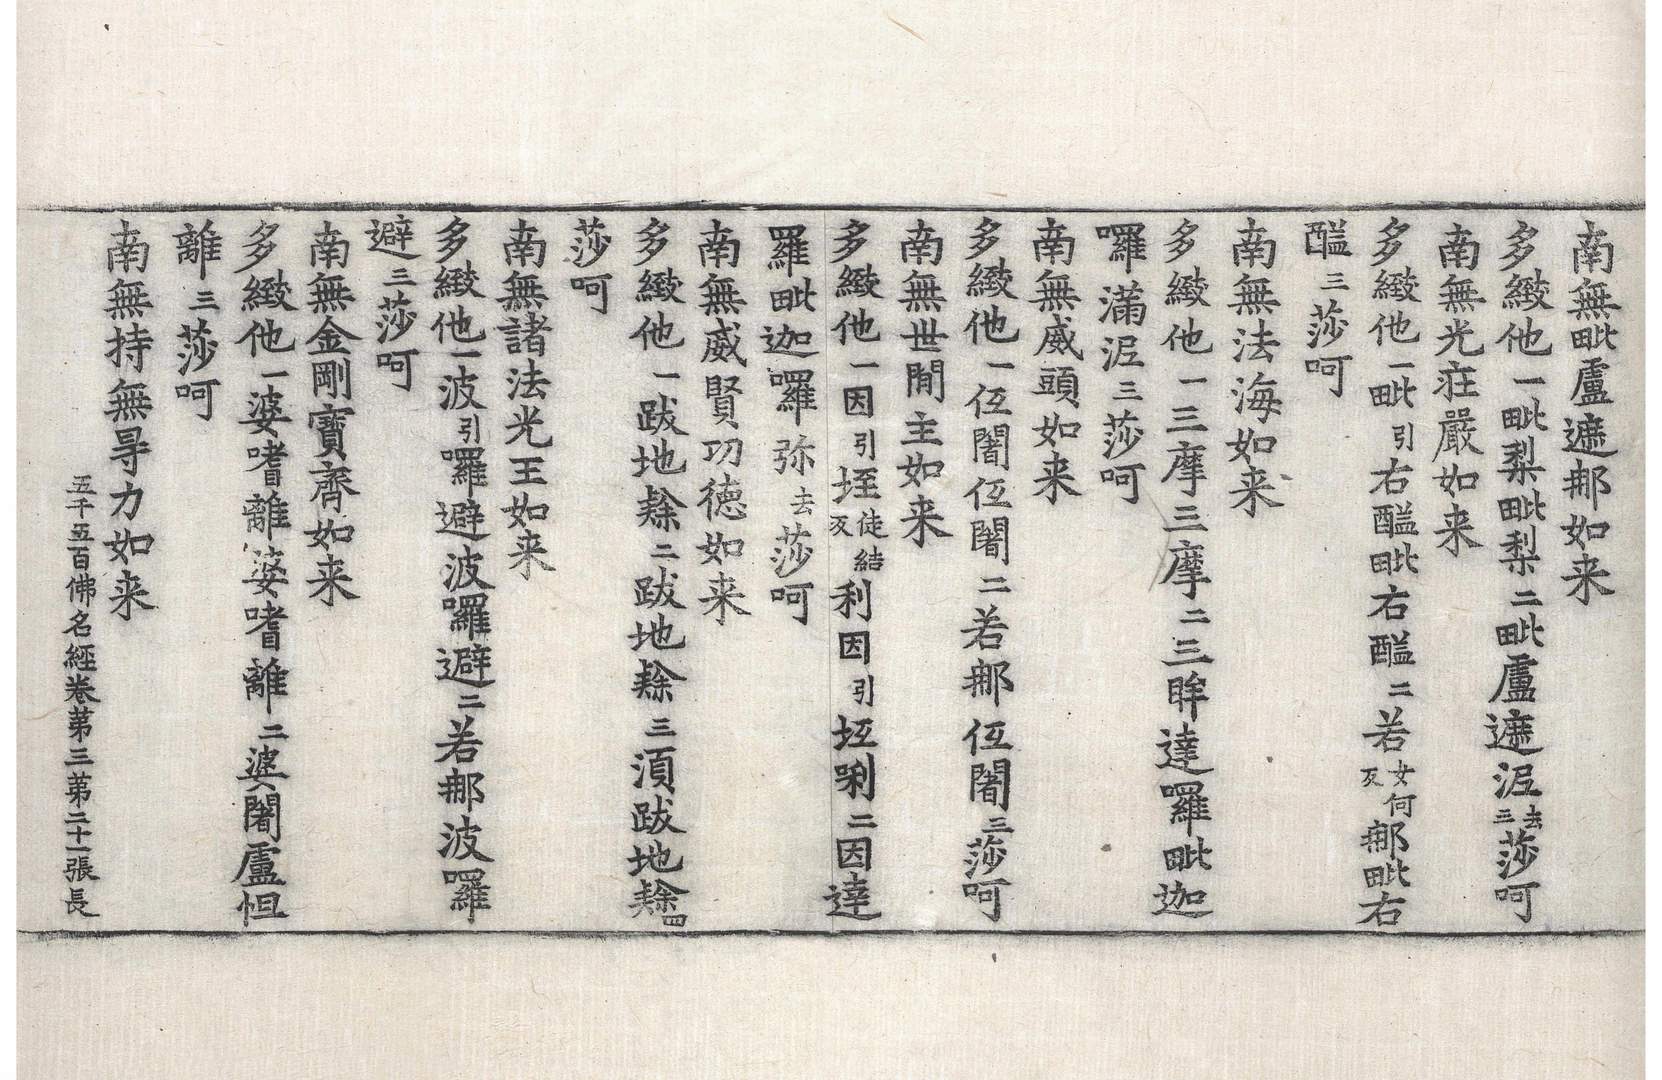 南無毗盧遮那如来
多緻他一毗梨毗梨二毗盧遮泥去三莎呵
南無光莊嚴如来
多緻他一毗引右醯毗右醯二若女何反那毗右
醯三莎呵
南無法海如来
多緻他一三摩三摩二三眸達囉毗迦
囉滿泥三莎呵
南無威頭如来
多緻他一伍闍伍闍二若那伍闍三莎呵
南無世閒主如来
多緻他一因引垤徒結反利因引垤唎二因達
羅毗迦囉弥去莎呵
南無威賢功徳如来
多緻他一跋地𨲠二跋地𨲠三湏跋地𨲠四
莎呵
南無諸法光王如来
多緻他一波引囉避波囉避二若那波囉
避三莎呵
南無金剛寶齊如来
多緻他一婆嗜離婆嗜離二婆闍盧怛
離三莎呵
南無持無㝵力如来
五千五百佛名經卷苐三苐二十一張長